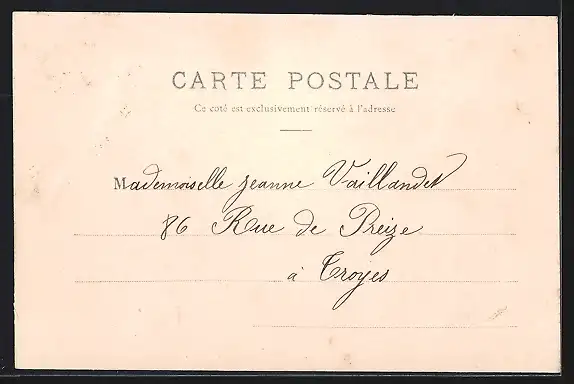 CARTE POSTALE
Ce coté est exclusivement réservé à l'adresse
Mademoiselle Jeanne Vaillandet
86 Rue de Preize
à Troyes